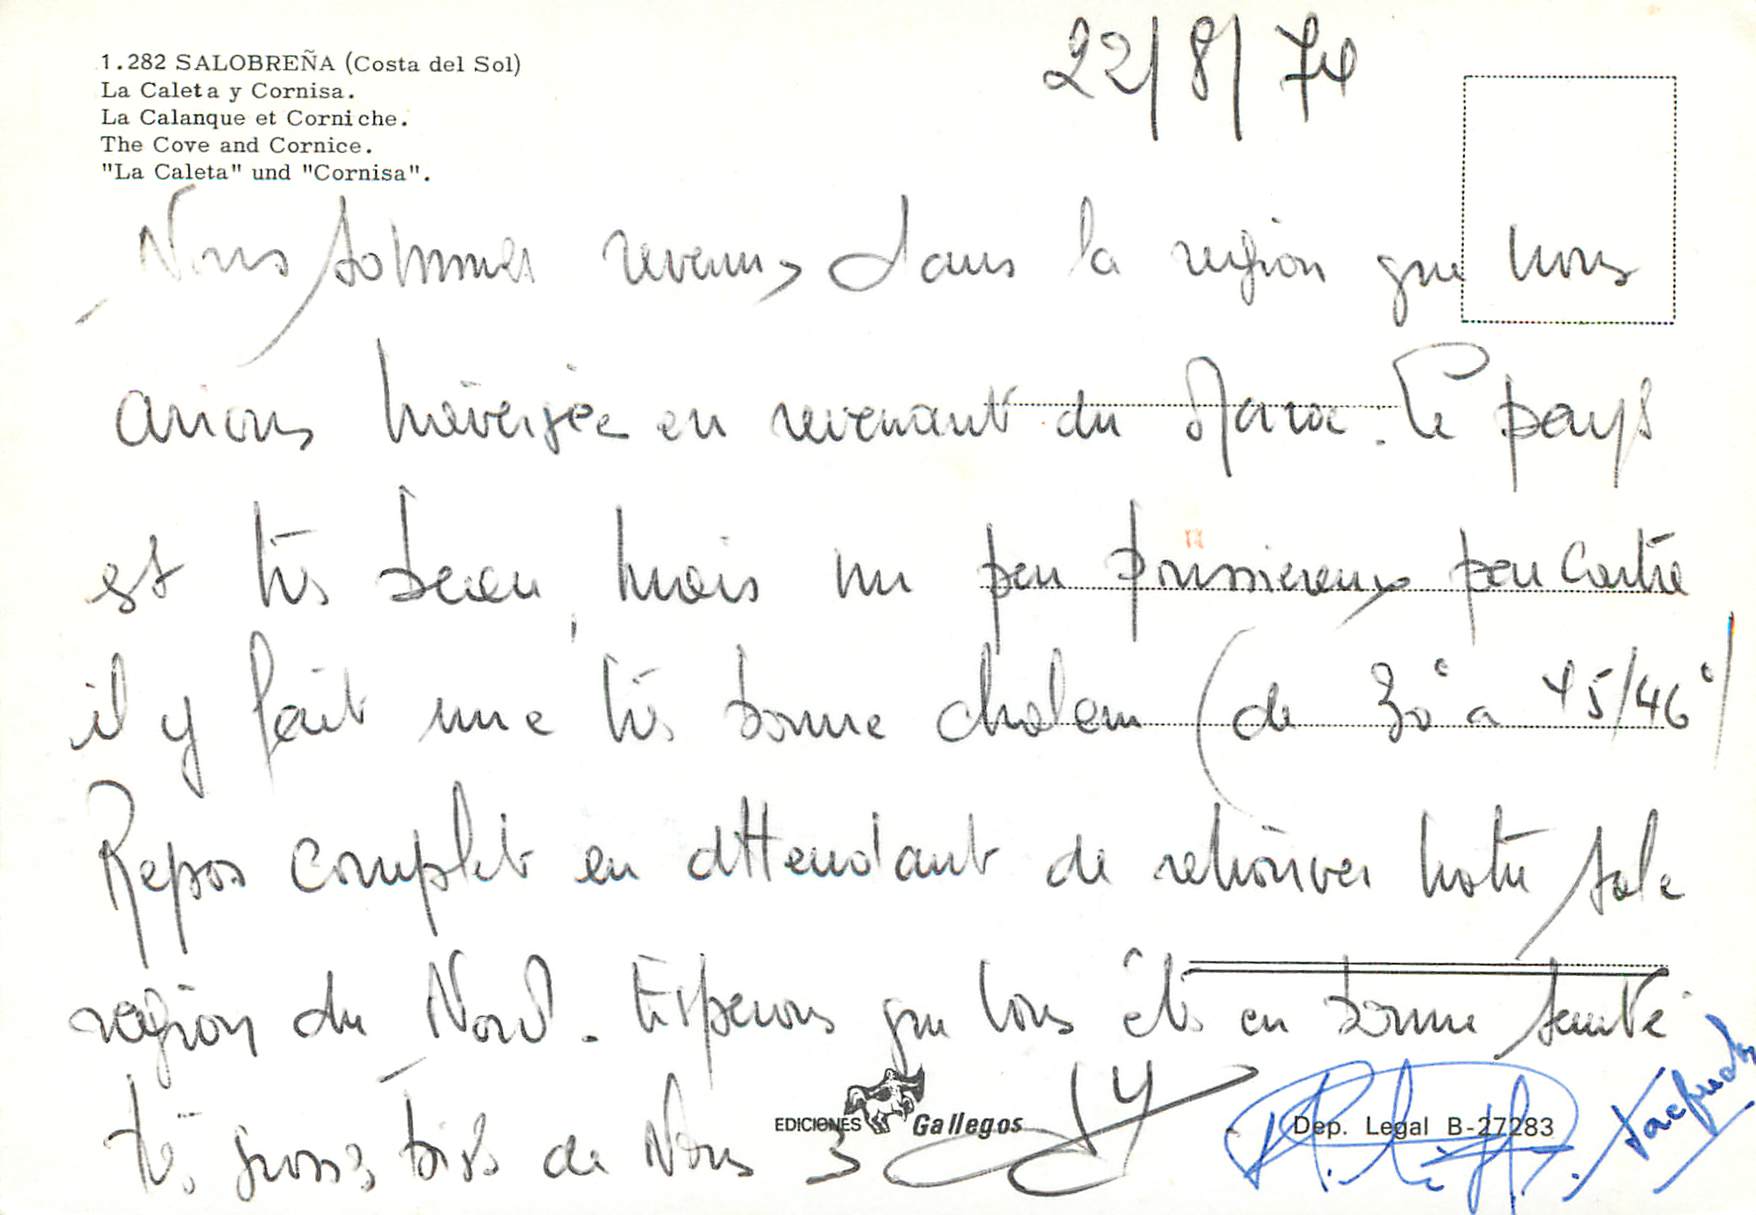 1.282 SALOBREÑA (Costa del Sol)
La Caleta y Cornisa.
La Calanque et Corniche.
The Cove and Cornice.
"La Caleta" und "Cornisa".
22/8/74
Nous sommes revenus dans la region que nous
avions traversée en revenant du Maroc. Le pays
est très beau, mais un peu poussiereux par contre
il y fait une très bonne chaleur (de 30° a 45/46°)
Repos complet en attendant de retrouver notre sale
region du Nord. Esperons que vous êtes en bonne santé
très grosses bises de Nous 3
EDICIONES Gallegos
Dep. Legal B-27283